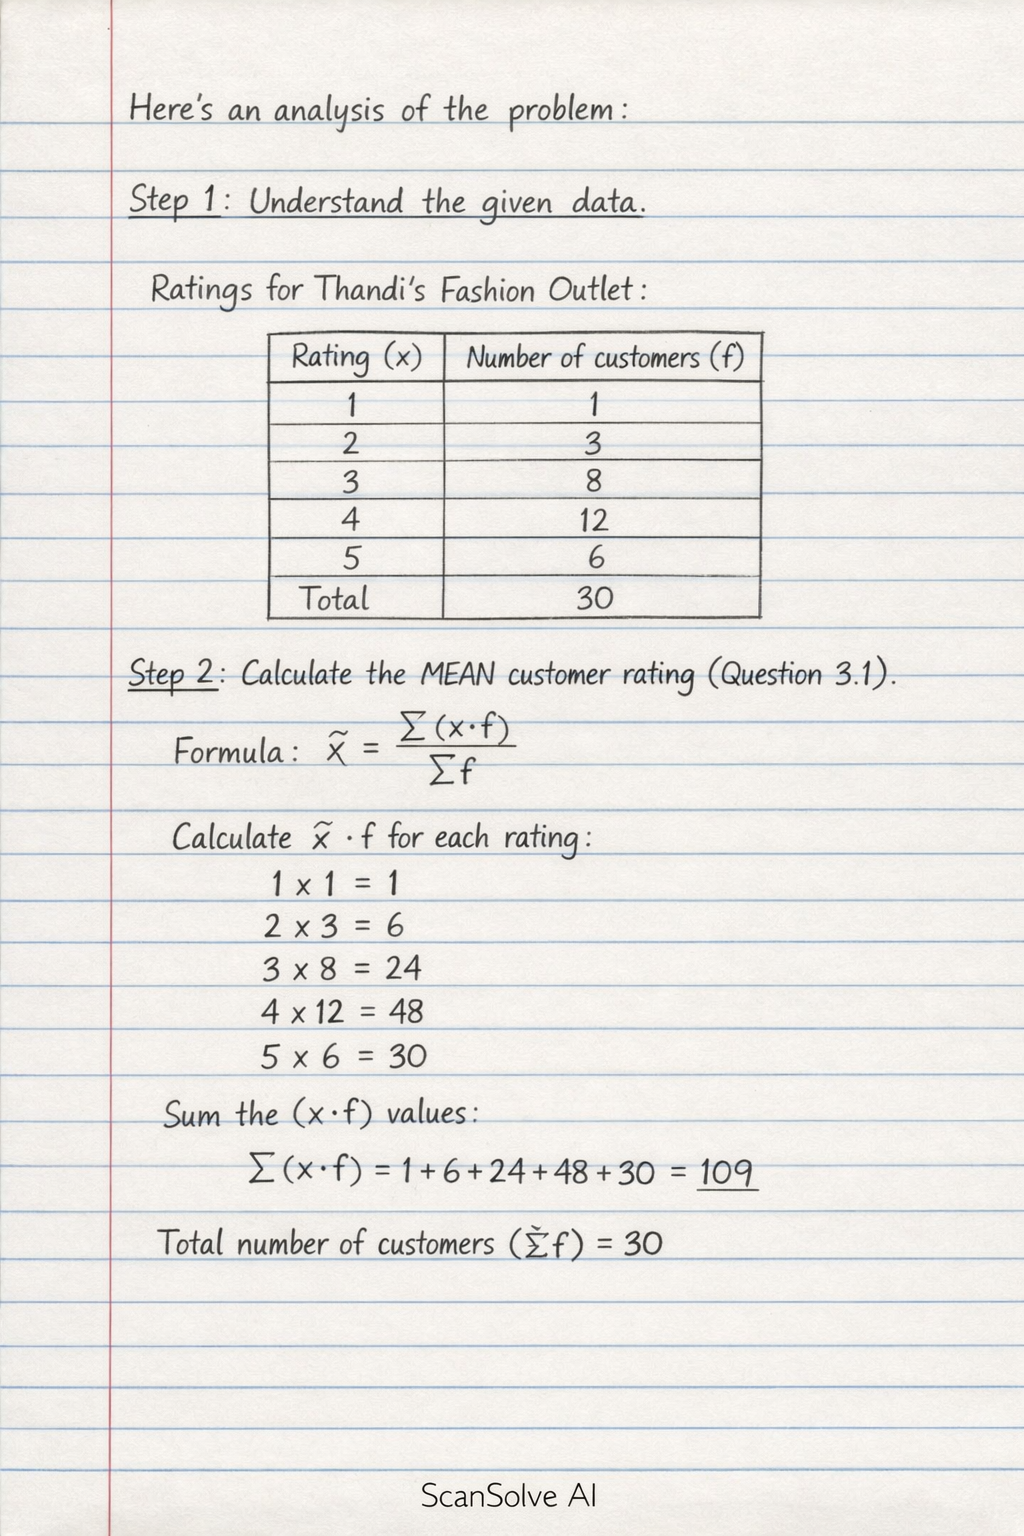 Here's an analysis of the problem:
Step 1: Understand the given data.
Ratings for Thandi's Fashion Outlet:
Rating (x) Number of customers (f)
1 1
2 3
3 8
4 12
5 6
Total 30
Step 2: Calculate the MEAN customer rating (Question 3.1).
Formula: x̃ = ∑(x·f) / ∑f
Calculate x̃ · f for each rating:
1 x 1 = 1
2 x 3 = 6
3 x 8 = 24
4 x 12 = 48
5 x 6 = 30
Sum the (x·f) values:
∑(x·f) = 1+6+24+48+30 = 109
Total number of customers (∑̌f) = 30
ScanSolve AI